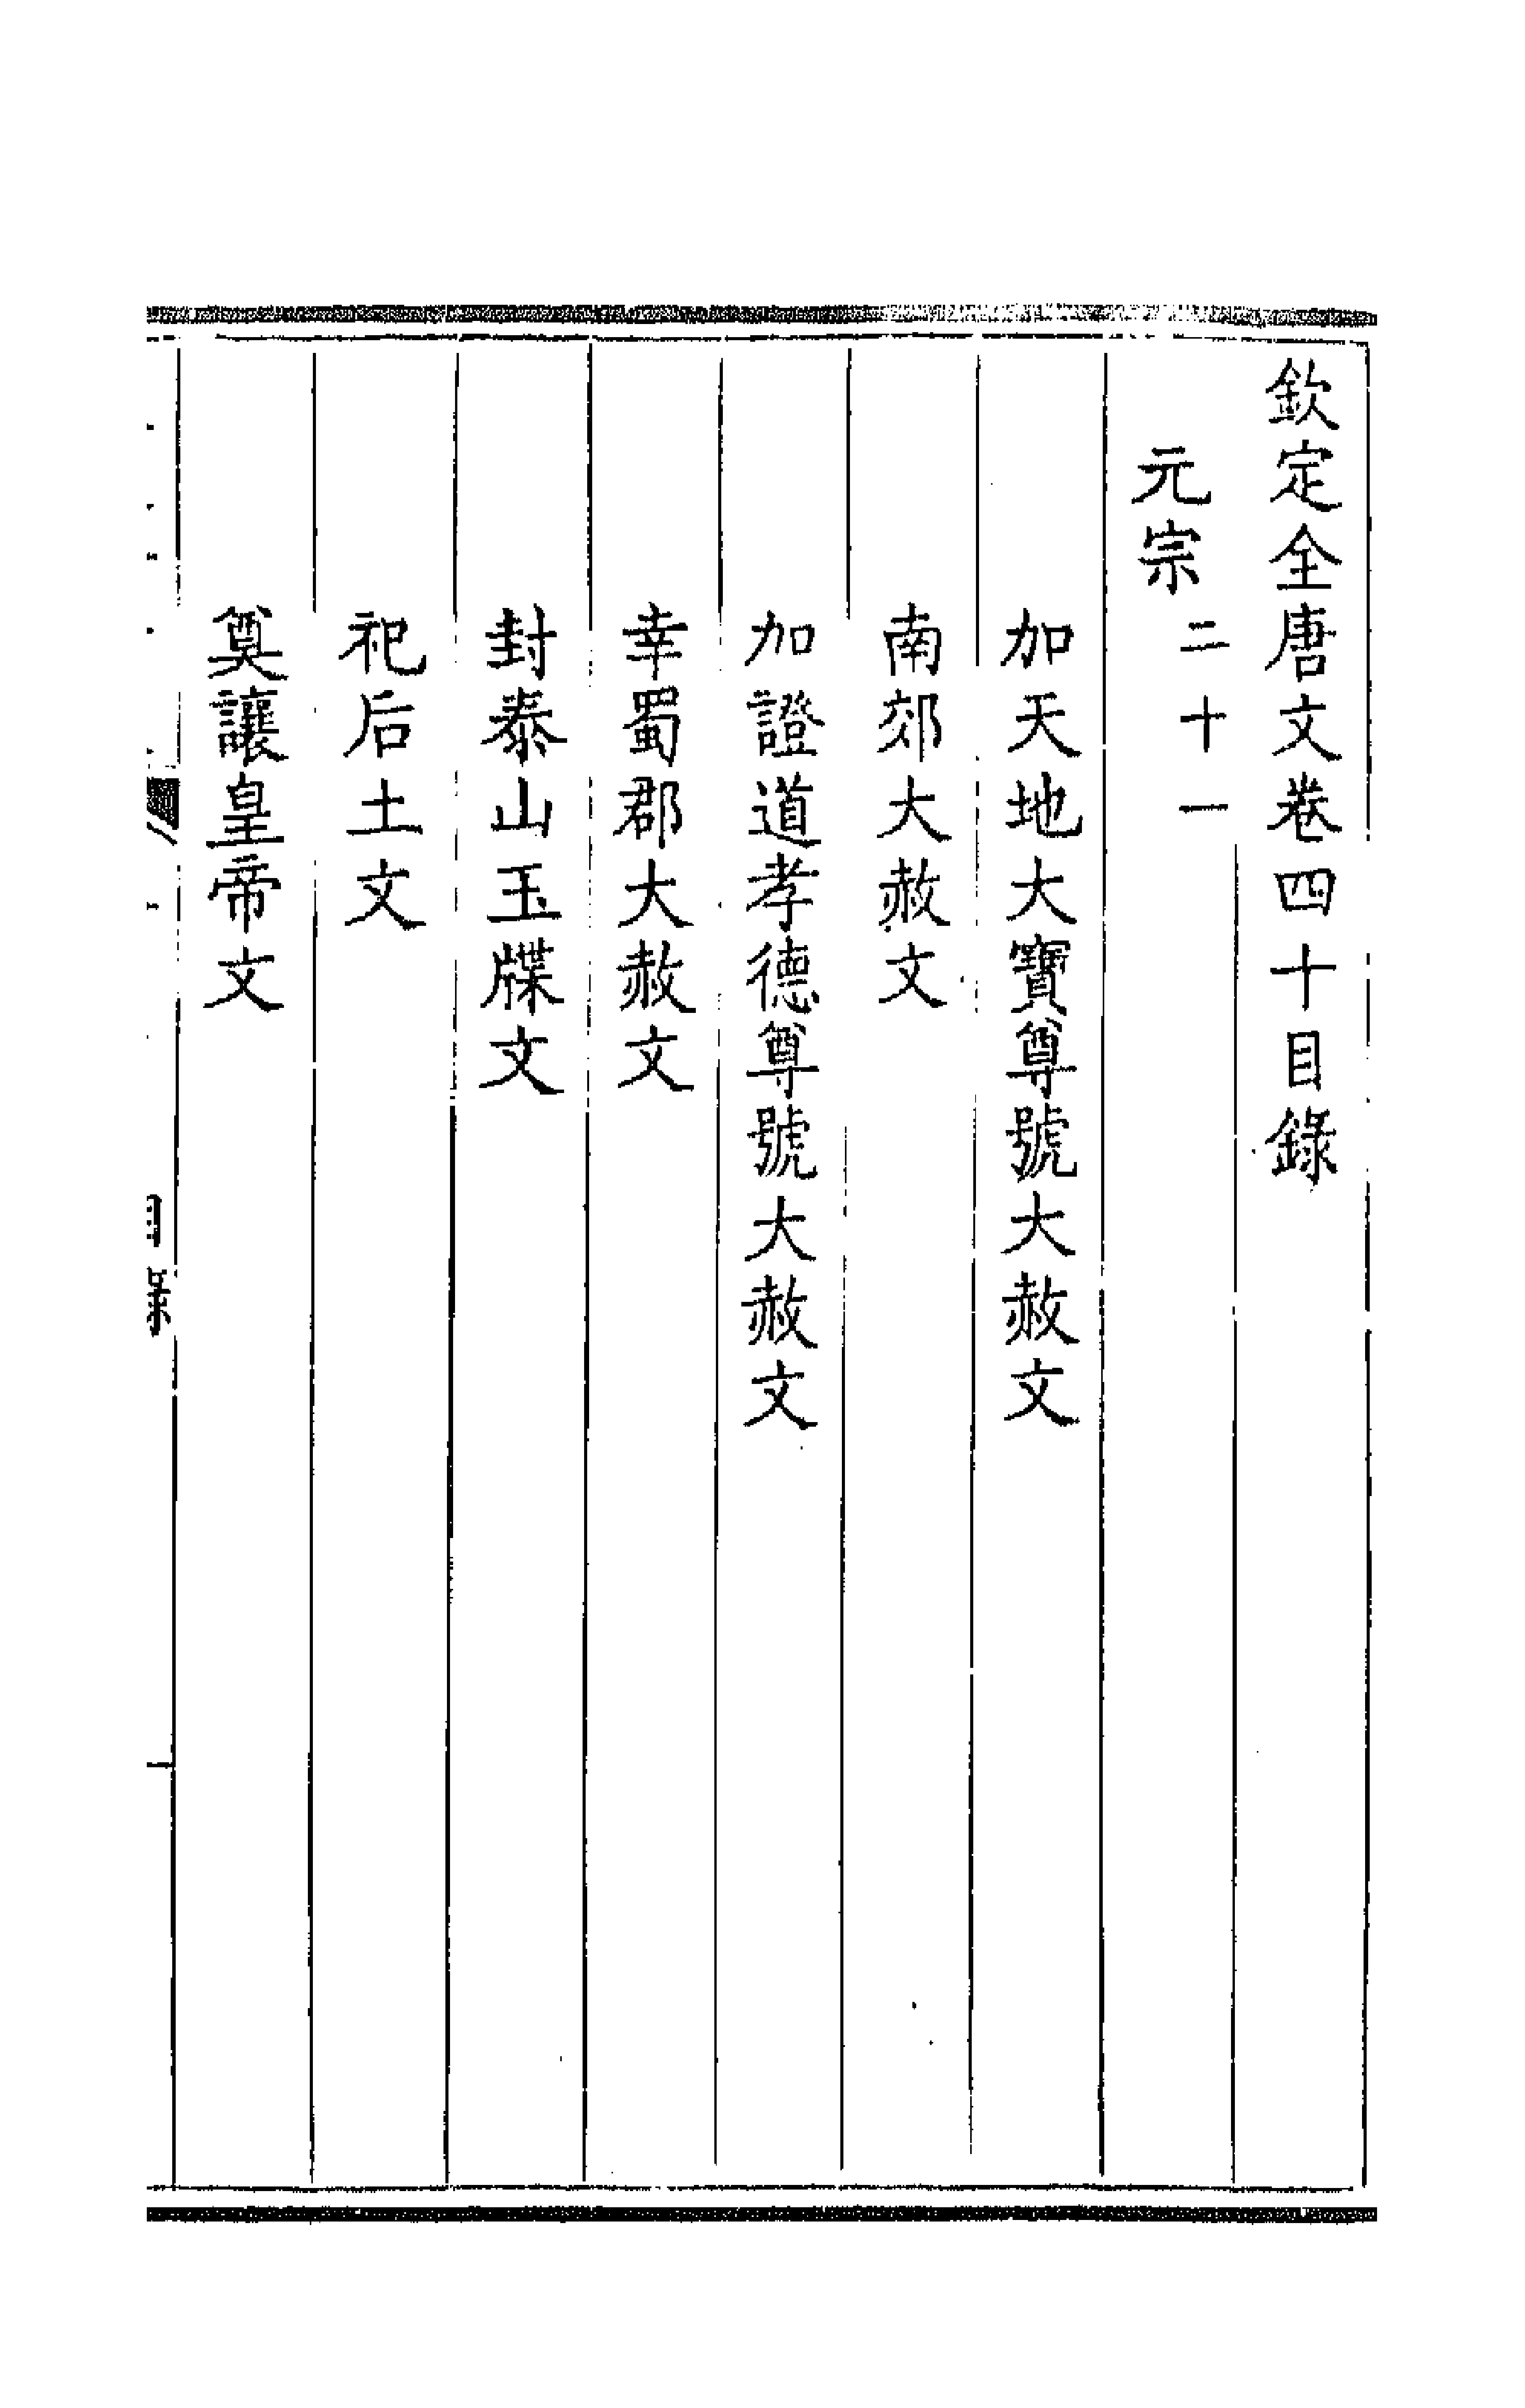 欽定全唐文卷四十目錄
元宗二十一
加天地大寶尊號大赦文
南郊大赦文
加證道孝德尊號大赦文
幸蜀郡大赦文
封泰山玉牒文
祀后土文
奠讓皇帝文